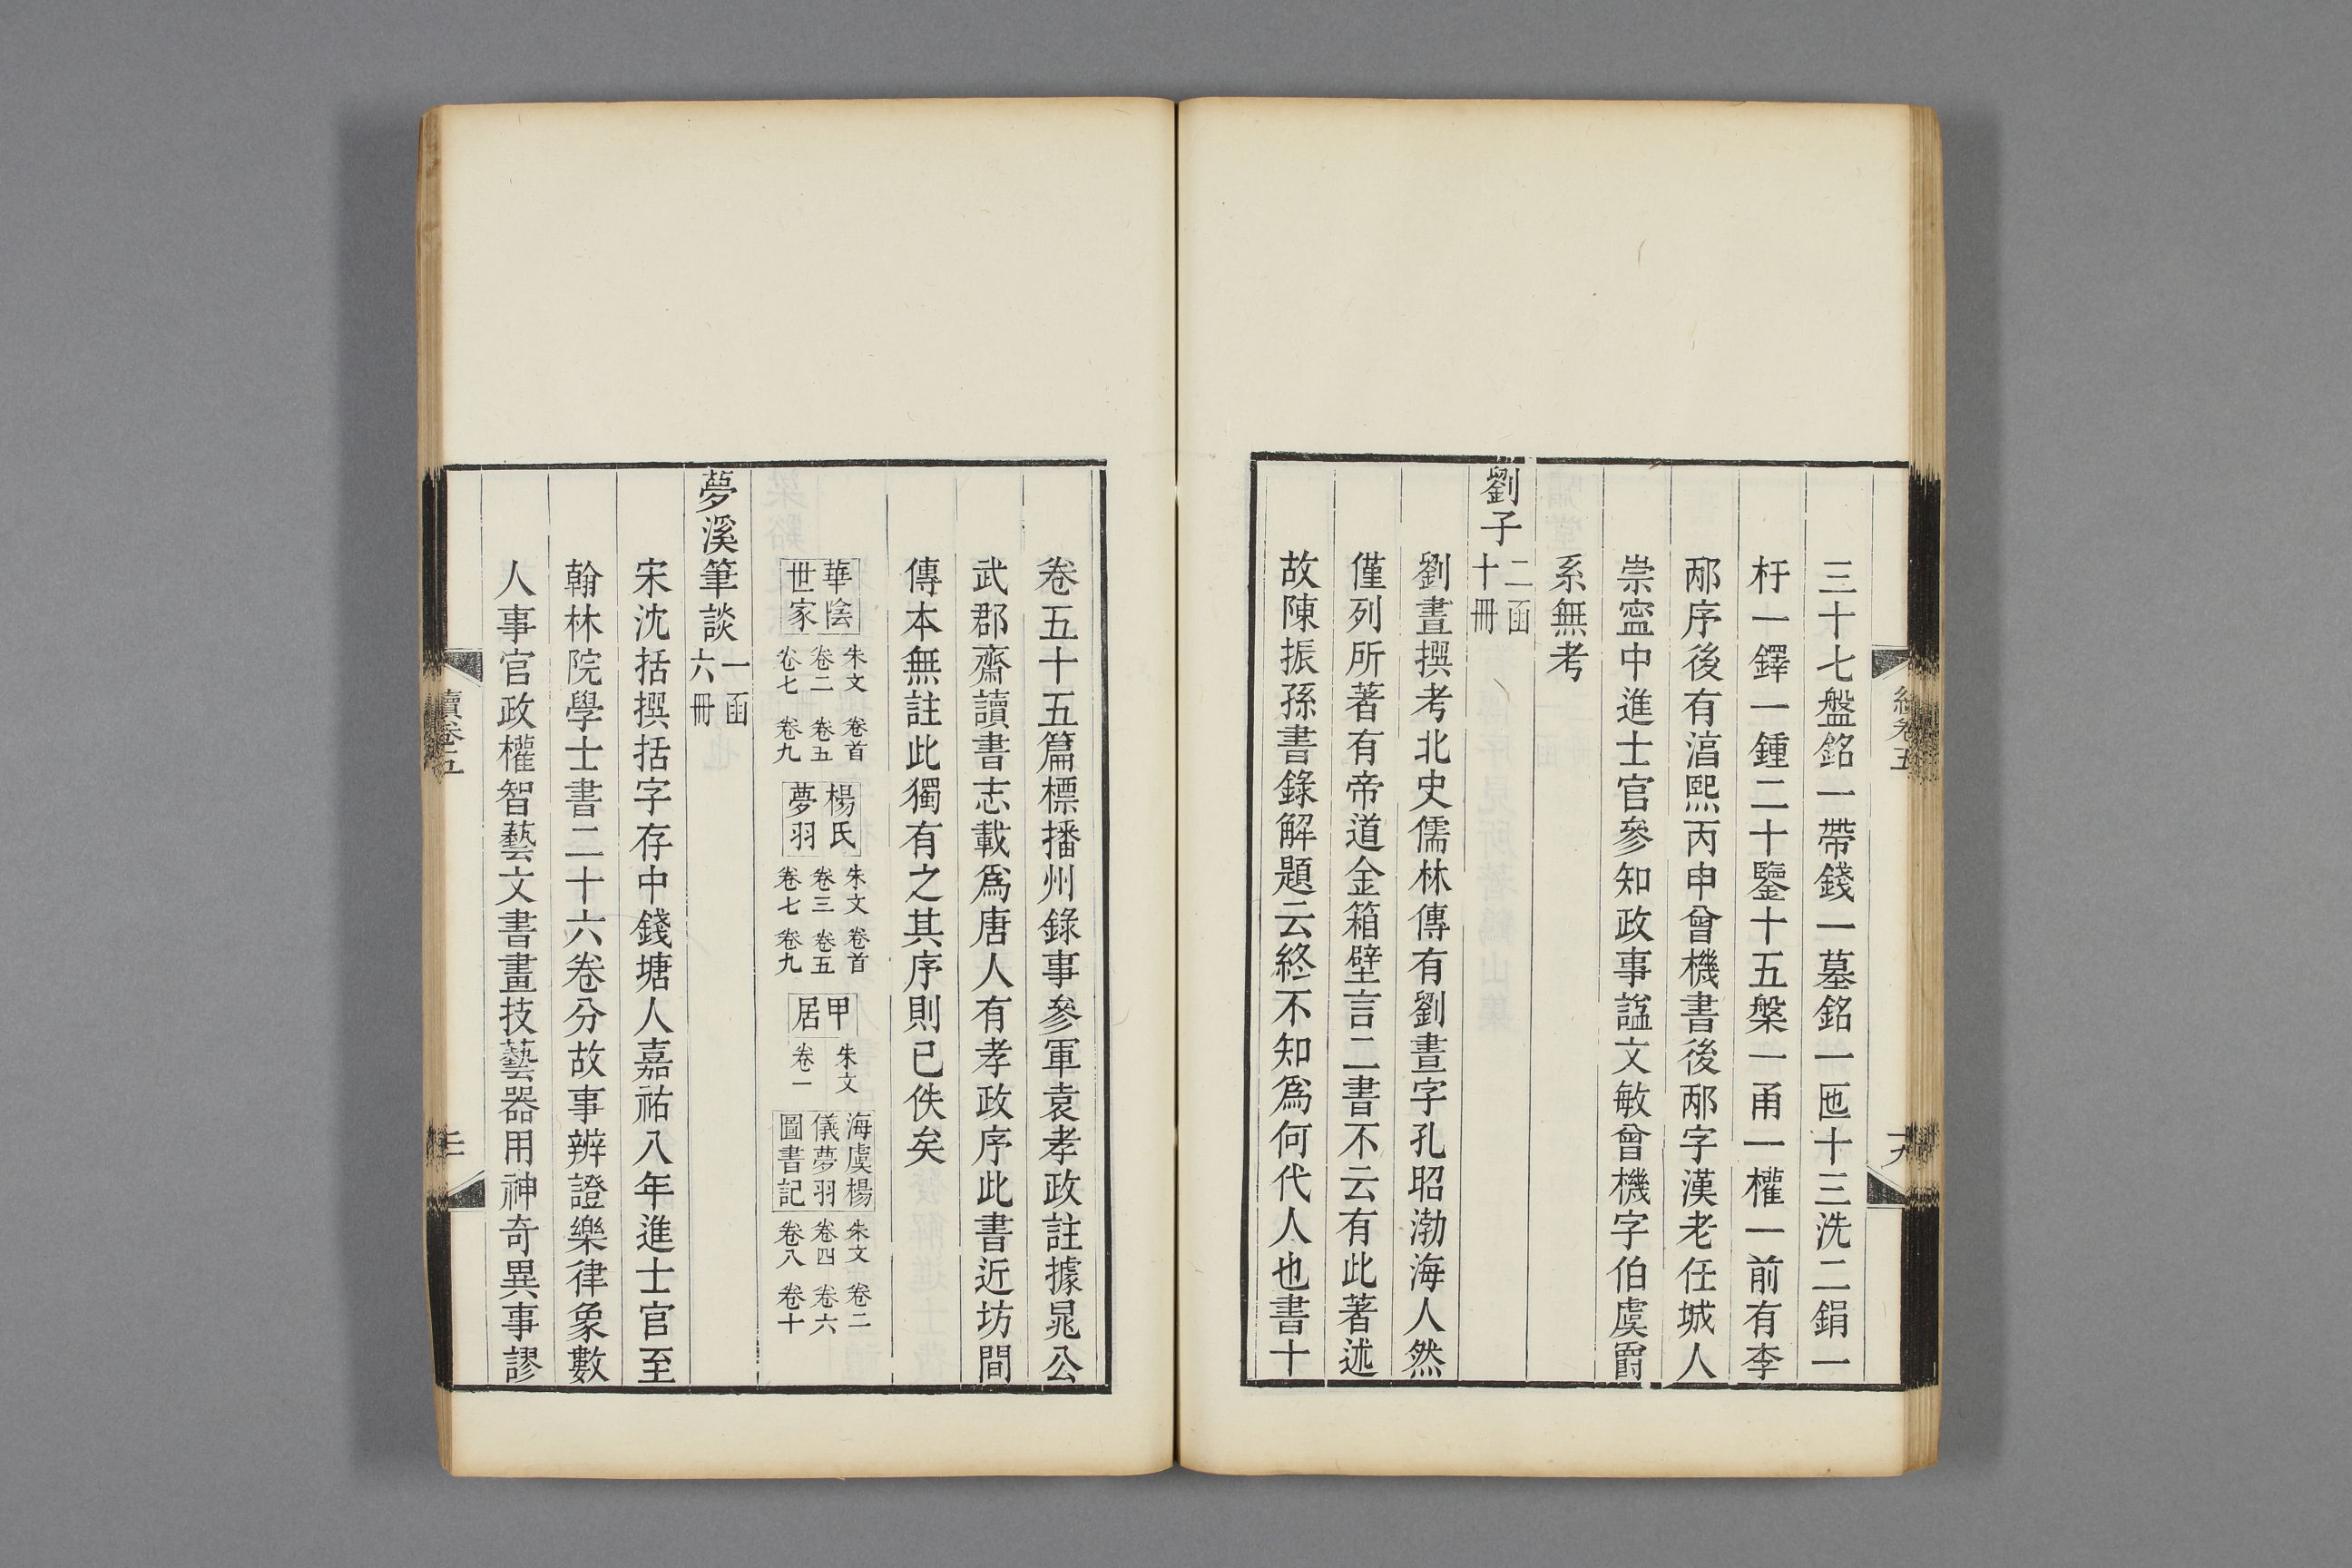 三十七盤銘一帶錢一墓銘一匜十三洗二鋗一
杅一鐸一鍾二十鑒十五槃一甬一權一前有李
邴序後有淳熙丙申曾機書後邴字漢老任城人
崇寍中進士官參知政事諡文敏曾機字伯虞爵
系無考
劉子二函十冊
劉晝撰考北史儒林傳有劉晝字孔昭渤海人然
僅列所著有帝道金箱壁言二書不云有此著述
故陳振孫書錄解題云終不知爲何代人也書十
續卷五
十九
卷五十五篇標播州錄事參軍袁孝政註據晁公
武郡齋讀書志載爲唐人有孝政序此書近坊間
傳本無註此獨有之其序則已佚矣
華陰世家 朱文 卷首 卷二 卷五 卷七 卷九 楊氏夢羽 朱文 卷首 卷三 卷五 卷七 卷九 甲居 朱文 卷一 海虞楊儀夢羽圖書記 朱文 卷二 卷四 卷六 卷八 卷十
夢溪筆談一函六冊
宋沈括撰括字存中錢塘人嘉祐八年進士官至
翰林院學士書二十六卷分故事辨證樂律象數
人事官政權智藝文書畫技藝器用神奇異事謬
續卷五